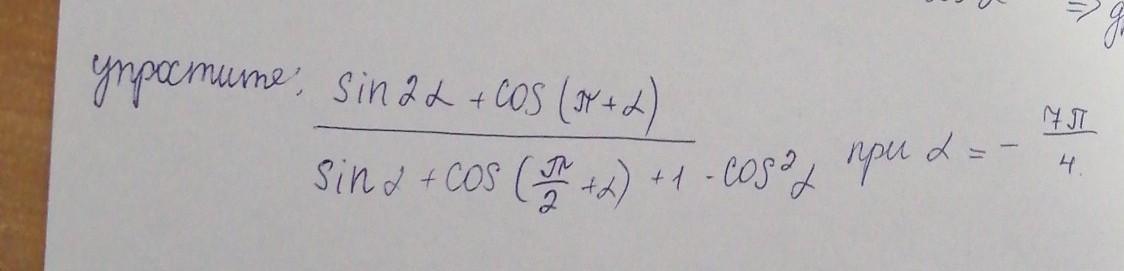 ⇒
упростите: (sin2α + cos(π+α)) / (sinα + cos(π/2 + α) + 1 - cos²α) при α = - 7π/4.